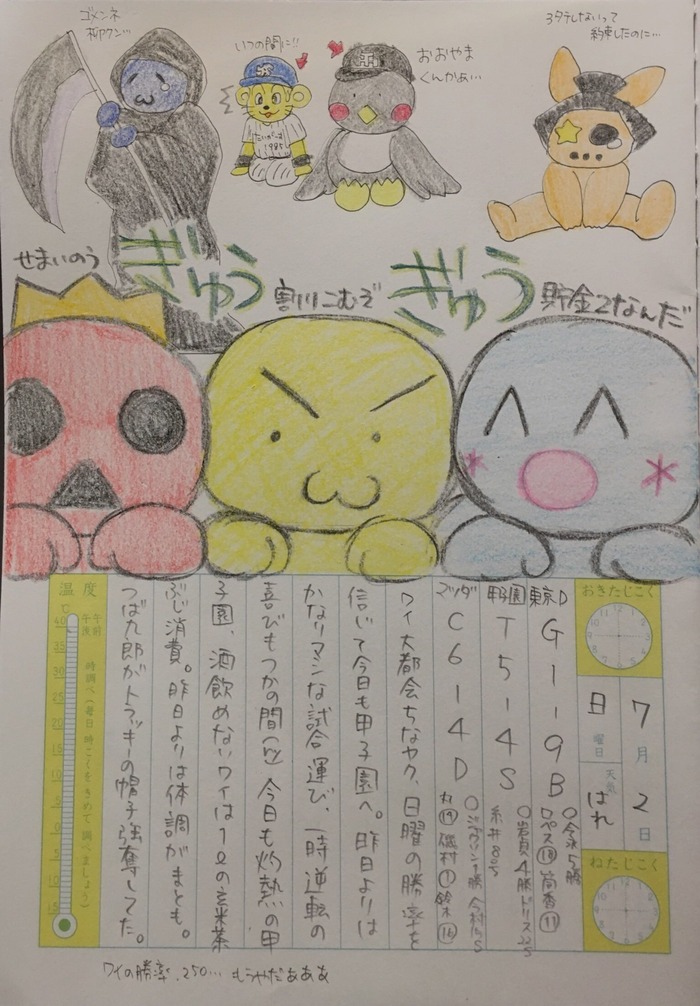 ゴメンネ
柳クン…
いつの間に!!
おおやま
くんかぁ…
3タテしないって
約束したのに…
たいがーす
1985
せまいのう
ぎゅう
割りこむぞ
ぎゅう
貯金2なんだ
おきたじこく
7月2日
日曜日
天気 はれ
ねたじこく
東京D G 1-9 B
○今永5勝
ロペス⑱ 筒香⑪
甲子園 T 5-4 S
○岩貞4勝 ドリス22S
糸井8号
マツダ C 6-4 D
○ジャクソン1勝 今村15S
丸⑲ 磯村① 鈴木⑯
ワイ大都会ちなヤク、日曜の勝率を
信じて今日も甲子園へ。昨日よりは
かなりマシな試合運び、一時逆転の
喜びもつかの間 今日も灼熱の甲
子園、酒飲めないワイは1ℓの玄米茶
ぶじ消費。昨日よりは体調がまとも。
つば九郎がトラッキーの帽子強奪してた。
温度
℃
午前
午後
時調べ(毎日 時こくをきめて 調べましょう)
40
35
30
25
20
15
10
5
0
5
10
15
ワイの勝率.250… もうやだぁぁぁ